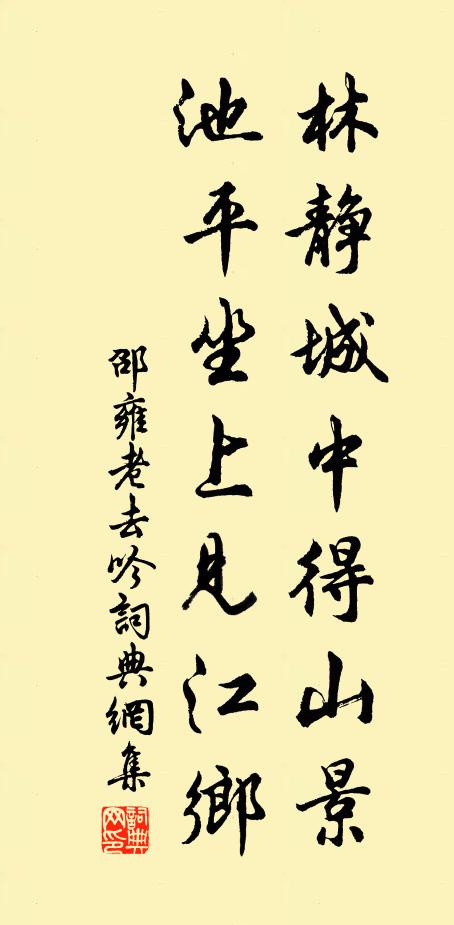 林静城中得山景
池平坐上見江鄉
邵雍老去吟詞典網集
詞典網印